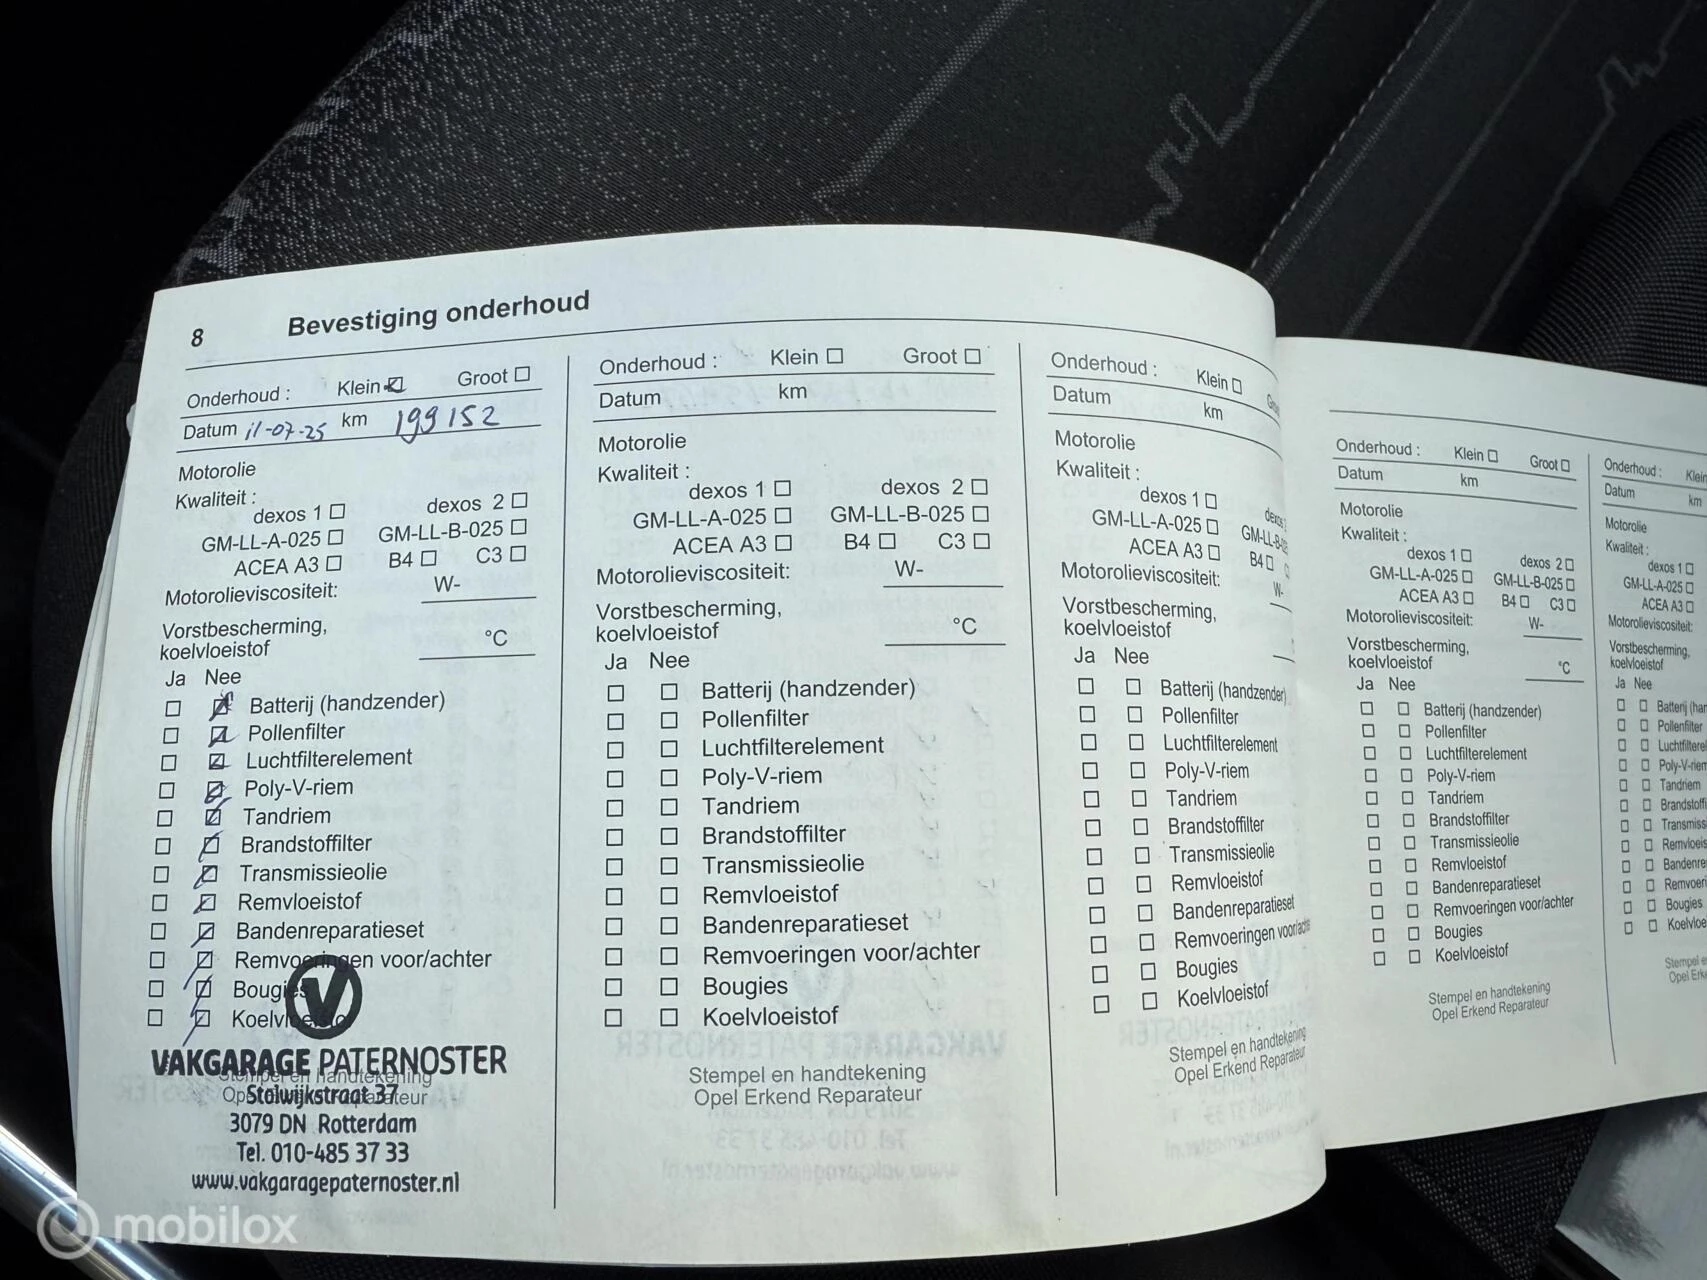 8 Bevestiging onderhoud
Onderhoud : Klein Groot
Datum 11-07-25 km 199152
Motorolie
Kwaliteit :
dexos 1 dexos 2
GM-LL-A-025 GM-LL-B-025
ACEA A3 B4 C3
Motorolieviscositeit: W-
Vorstbescherming,
koelvloeistof °C
Ja Nee
Batterij (handzender)
Pollenfilter
Luchtfilterelement
Poly-V-riem
Tandriem
Brandstoffilter
Transmissieolie
Remvloeistof
Bandenreparatieset
Remvoeringen voor/achter
Bougies
Koelvloeistof
VAKGARAGE PATERNOSTER
Stempel en handtekening
Opel Erkend Reparateur
Stolwijkstraat 37
3079 DN Rotterdam
Tel. 010-485 37 33
www.vakgaragepaternoster.nl
Onderhoud : Klein Groot
Datum km
Motorolie
Kwaliteit :
dexos 1 dexos 2
GM-LL-A-025 GM-LL-B-025
ACEA A3 B4 C3
Motorolieviscositeit: W-
Vorstbescherming,
koelvloeistof °C
Ja Nee
Batterij (handzender)
Pollenfilter
Luchtfilterelement
Poly-V-riem
Tandriem
Brandstoffilter
Transmissieolie
Remvloeistof
Bandenreparatieset
Remvoeringen voor/achter
Bougies
Koelvloeistof
Stempel en handtekening
Opel Erkend Reparateur
Onderhoud : Klein
Datum km
Motorolie
Kwaliteit :
dexos 1 dexos
GM-LL-A-025 GM-LL-B-02
ACEA A3 B4
Motorolieviscositeit: W-
Vorstbescherming,
koelvloeistof
Ja Nee
Batterij (handzender)
Pollenfilter
Luchtfilterelement
Poly-V-riem
Tandriem
Brandstoffilter
Transmissieolie
Remvloeistof
Bandenreparatieset
Remvoeringen voor/achter
Bougies
Koelvloeistof
Stempel en handtekening
Opel Erkend Reparateur
Onderhoud : Klein Groot
Datum km
Motorolie
Kwaliteit :
dexos 1 dexos 2
GM-LL-A-025 GM-LL-B-025
ACEA A3 B4 C3
Motorolieviscositeit: W-
Vorstbescherming,
koelvloeistof °C
Ja Nee
Batterij (handzender)
Pollenfilter
Luchtfilterelement
Poly-V-riem
Tandriem
Brandstoffilter
Transmissieolie
Remvloeistof
Bandenreparatieset
Remvoeringen voor/achter
Bougies
Koelvloeistof
Stempel en handtekening
Opel Erkend Reparateur
Onderhoud : Klein
Datum km
Motorolie
Kwaliteit :
dexos 1
GM-LL-A-025
ACEA A3
Motorolieviscositeit:
Vorstbescherming,
koelvloeistof
Ja Nee
Batterij (han
Pollenfilter
Luchtfilterel
Poly-V-riem
Tandriem
Brandstoffi
Transmiss
Remvloeis
Bandenre
Remvoeri
Bougies
Koelvloe
Stempel e
Opel Erke
mobilox